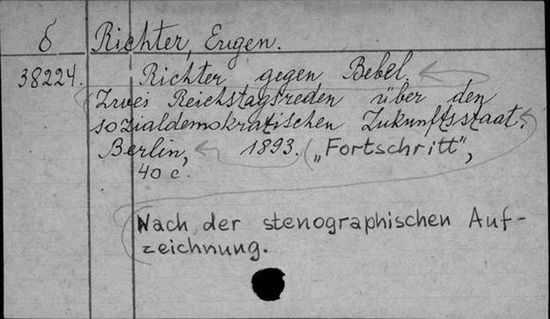 б Richter, Eugen.
38224. Richter gegen Bebel.
Zwei Reichstagsreden über den
sozialdemokratischen Zukunftsstaat.
Berlin, 1893. („Fortschritt",
40 c.
Nach der stenographischen Auf-
zeichnung.